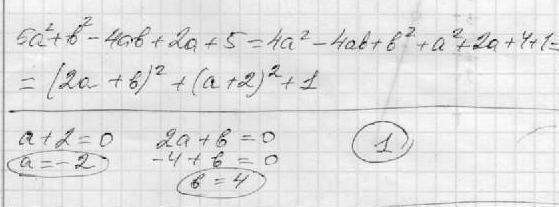 5a² + b² - 4ab + 2a + 5 = 4a² - 4ab + b² + a² + 2a + 4 + 1 =
= (2a + b)² + (a + 2)² + 1
a + 2 = 0 2a + b = 0 1
a = -2 -4 + b = 0
b = 4